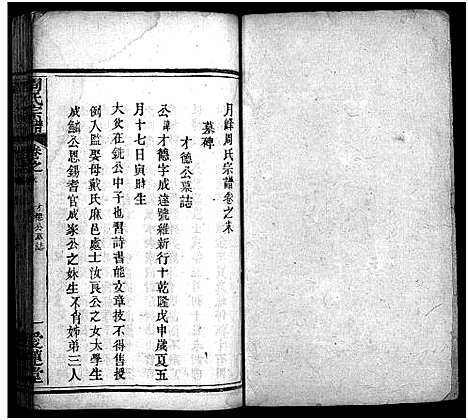 月峰周氏宗譜卷之末
墓碑
才德公墓誌
公諱才德字成遠號維新行十乾隆戊申歲夏五
月十七日寅時生
大父在銑公中子也習詩書能文章技不得售授
例入監娶母戴氏麻邑處士汝良公之女大學生
成鱗公恩錫耆官成家公之妹生不肖姊弟三人
周氏宗譜
卷之末
才德公墓誌
愛蓮堂